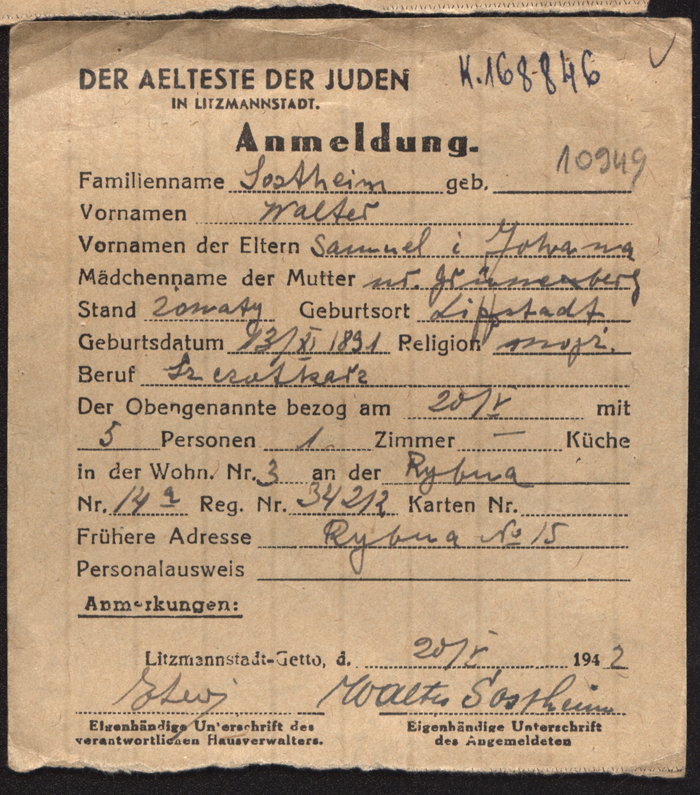 K.168846
DER AELTESTE DER JUDEN
IN LITZMANNSTADT.
Anmeldung.
10949
Familienname Sostheim geb.
Vornamen Walter
Vornamen der Eltern Samuel i Johana
Mädchenname der Mutter ur. Grünenberg
Stand żonaty Geburtsort Lippstadt
Geburtsdatum 13/XI 1891 Religion mojż.
Beruf Szczotkarz
Der Obengenannte bezog am 20/V mit
5 Personen 1 Zimmer — Küche
in der Wohn. Nr. 3 an der Rybna
Nr. 14a Reg. Nr. Karten Nr.
Frühere Adresse Rybna No 15
Personalausweis
Anmerkungen:
Litzmannstadt-Getto, d. 20/V 1942
Walter Sostheim
Eigenhändige Unterschrift des Eigenhändige Unterschrift
verantwortlichen Hausverwalters. des Angemeldeten